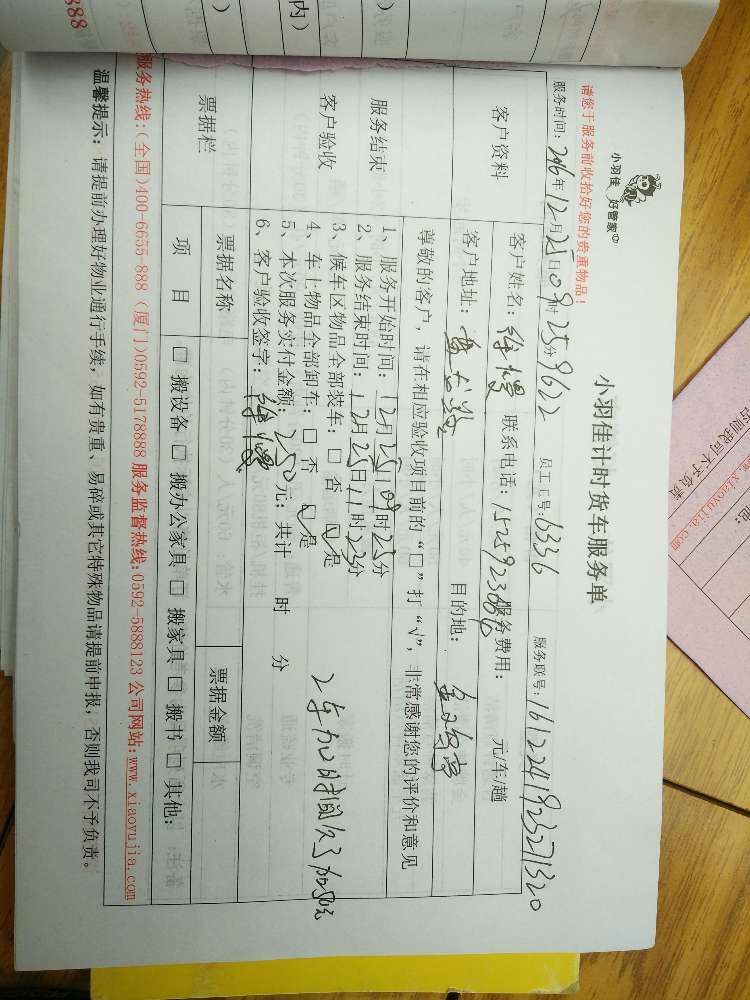 小羽佳 好管家
小羽佳计时货车服务单
请您于服务前收拾好您的贵重物品！
服务时间：2016年12月25日09时25分 9622 员工工号：6336 服务联号：1612241923271320
客户资料
客户姓名：徐 联系电话：服务费用： 元/车/趟
客户地址： 目的地：
尊敬的客户，请在相应验收项目前的“□”打“√”，非常感谢您的评价和意见
服务结束
客户验收
1、服务开始时间：12月25日09时25分
2、服务结束时间：12月25日11时25分
3、候车区物品全部装车：□ 否 ☑ 是
4、车上物品全部卸车：□ 否 ☑ 是
5、本次服务实付金额：250元；共计 时 分
6、客户验收签字：徐
票据栏
票据名称 票据金额
项 目 □ 搬设备 □ 搬办公家具 □ 搬家具 □ 搬书 □ 其他：
服务热线：(全国)400-6655-888 (厦门)0592-5178888 服务监督热线：0592-5888123 公司网站：www.xiaoyujia.com
温馨提示：请提前办理好物业通行手续，如有贵重、易碎或其它特殊物品请提前申报，否则我司不予负责。
否则我司不予负责
xiaoyujia.com
888
内)